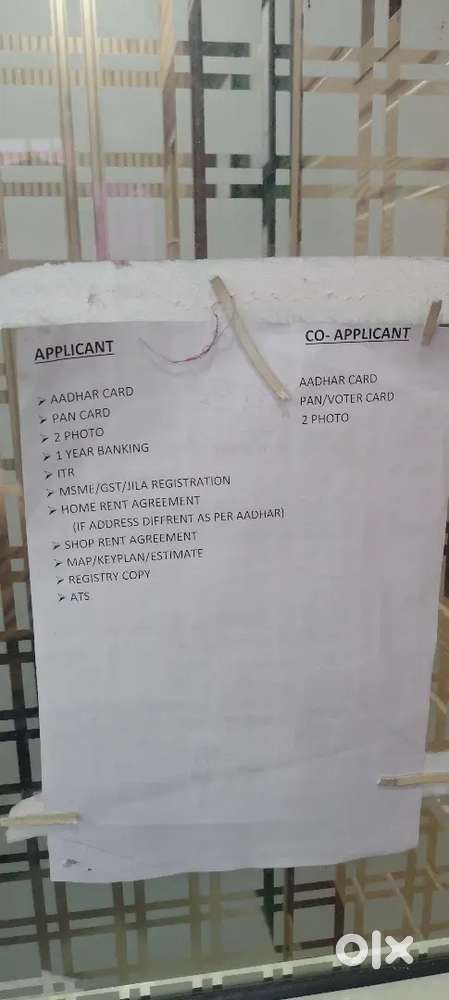 APPLICANT
➢ AADHAR CARD
➢ PAN CARD
➢ 2 PHOTO
➢ 1 YEAR BANKING
➢ ITR
➢ MSME/GST/JILA REGISTRATION
➢ HOME RENT AGREEMENT
(IF ADDRESS DIFFRENT AS PER AADHAR)
➢ SHOP RENT AGREEMENT
➢ MAP/KEYPLAN/ESTIMATE
➢ REGISTRY COPY
➢ ATS
CO- APPLICANT
AADHAR CARD
PAN/VOTER CARD
2 PHOTO
olx